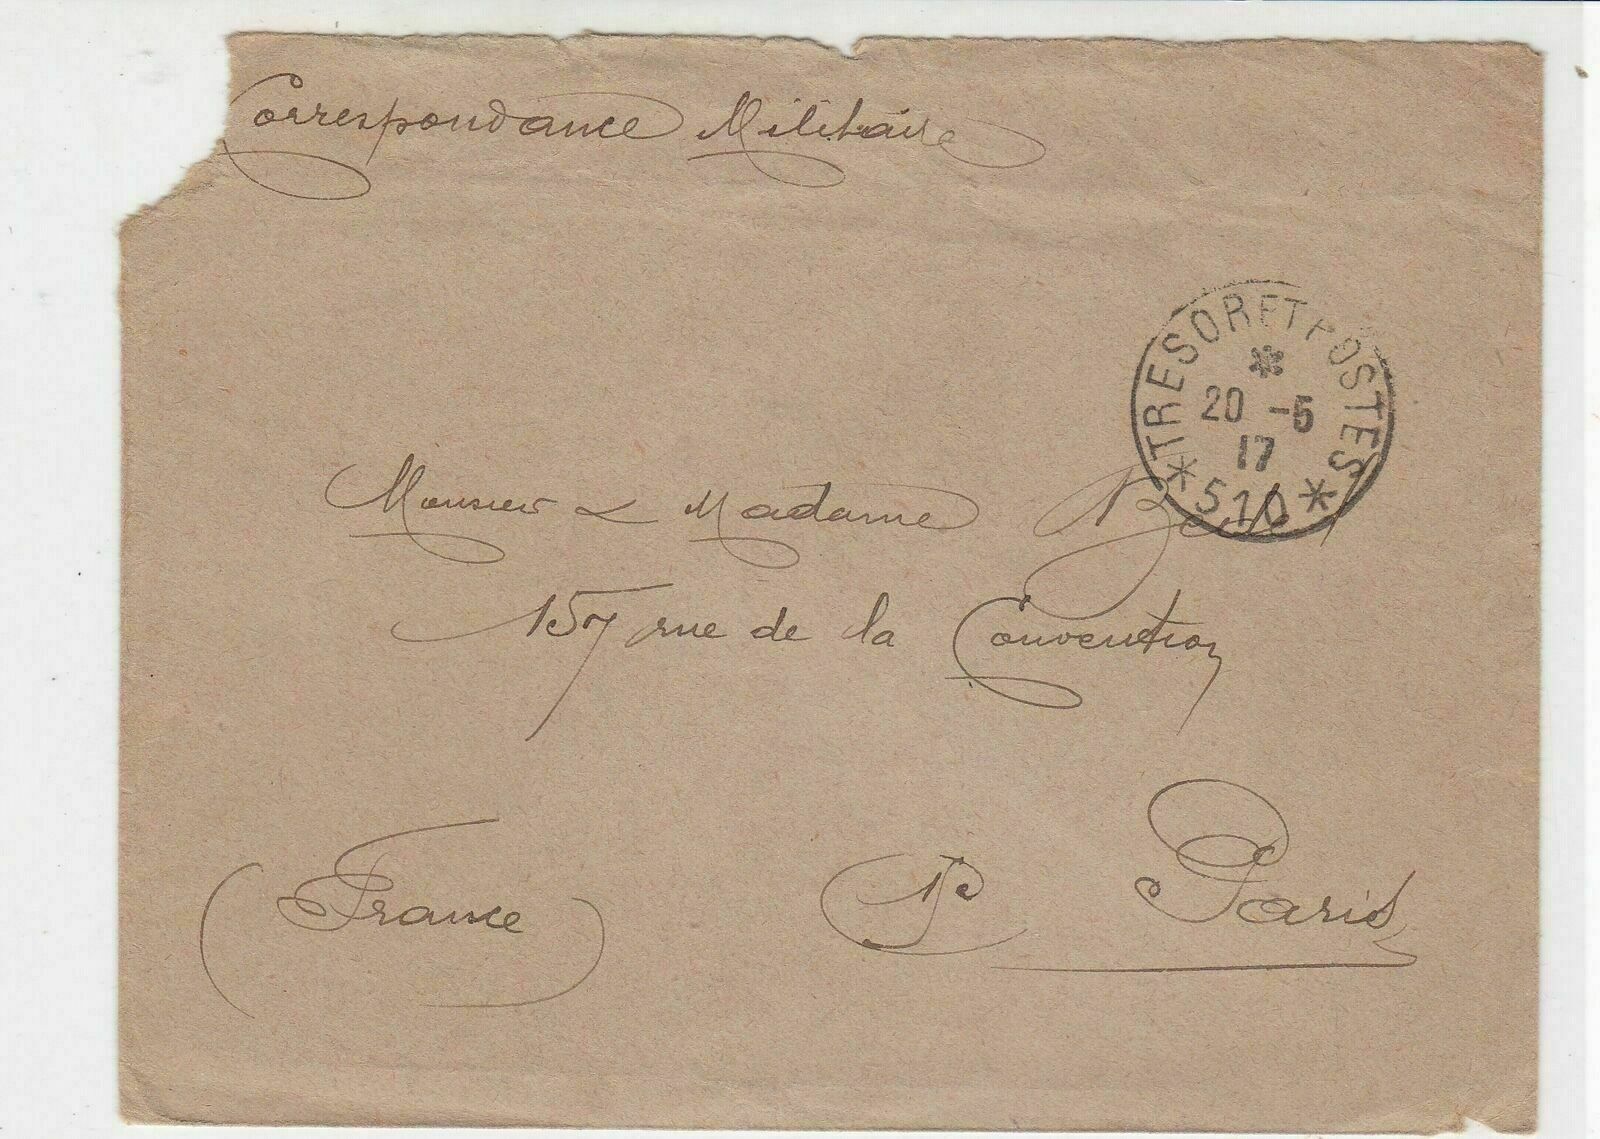 Correspondance Militaire
TRESOR ET POSTES
20 -5
17
* 510 *
Monsieur & Madame
157 rue de la Convention
Paris
(France)